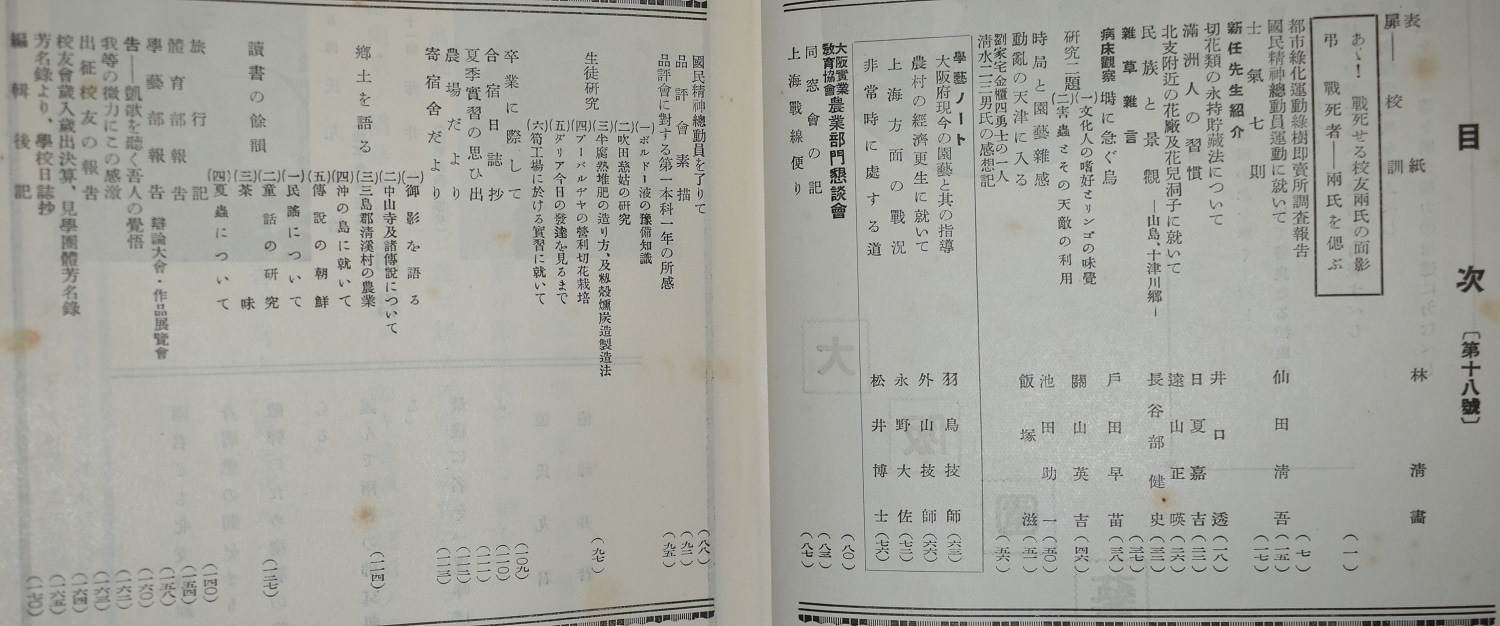 目次〔第十八號〕
表紙 林清畫
扉――校訓
あゝ! 戰死せる校友兩氏の面影 (一)
弔 戰死者――兩氏を偲ぶ
都市綠化運動綠樹即賣所調査報告 (七)
國民精神總動員運動に就いて 仙田淸吾 (一五)
士氣七則 (一七)
新任先生紹介
切花類の永持貯藏法について 井口透 (一八)
滿洲人の習慣 日夏嘉吉
北支附近の花廠及花兒洞子に就いて 遠山正暎 (二六)
民族と景觀―山島、十津川鄕― 長谷部健史 (三二)
雜草雜言 (三七)
病床觀察 塒に急ぐ鳥 戸田早苗 (三八)
硏究二題 (一)文化人の嗜好とリンゴの味覺
(二)害蟲とその天敵の利用 關山英吉 (四六)
時局と園藝雜感 池田助一 (五〇)
動亂の天津に入る 飯塚滋 (五一)
劉家宅金櫃四勇士の一人
淸水二三男氏の感想記 (五六)
學藝ノート
大阪府現今の園藝と其の指導 羽鳥技師 (六三)
農村の經濟更生に就いて 外山技師 (六六)
上海方面の戰況 永野大佐 (七二)
非常時に處する道 松井博士 (七六)
大阪實業敎育協會 農業部門懇談會 (八〇)
同窓會の記 (八三)
上海戰線便り (八七)
國民精神總動員を了りて (八八)
品評會素描 (九二)
品評會に對する第一本科一年の所感 (九五)
生徒硏究 (九七)
(一)ボルドー液の豫備知識
(二)吹田慈姑の硏究
(三)牛腐熱堆肥の造り方、及籾殼燻炭造製造法
(四)アーバルデヤの營利切花栽培
(五)ダリア今日の發達を見るまで
(六)筍工場に於ける實習に就いて
卒業に際して (一〇九)
合宿日誌抄 (一一〇)
夏季實習の思ひ出 (一一一)
農場だより (一一二)
寄宿舍だより (一一三)
鄕土を語る (一一四)
(一)御影を語る
(二)中山寺及諸傳說について
(三)三島郡淸溪村の農業
(四)沖の島に就いて
(五)傳說の朝鮮
讀書の餘韻 (一二七)
(一)民謠について
(二)童話の硏究
(三)茶味
(四)夏蟲について
旅行記 (一四〇)
體育部報告 (一五四)
學藝部報告 辯論大會・作品展覽會 (一五八)
告――凱歌を聽く吾人の覺悟 (一六〇)
我等の微力にこの感激 (一六二)
出征校友の報告 (一六三)
校友會歲入歲出決算、見學團體芳名錄 (一六四)
芳名錄より、學校日誌抄 (一六五)
編輯後記 (一七〇)